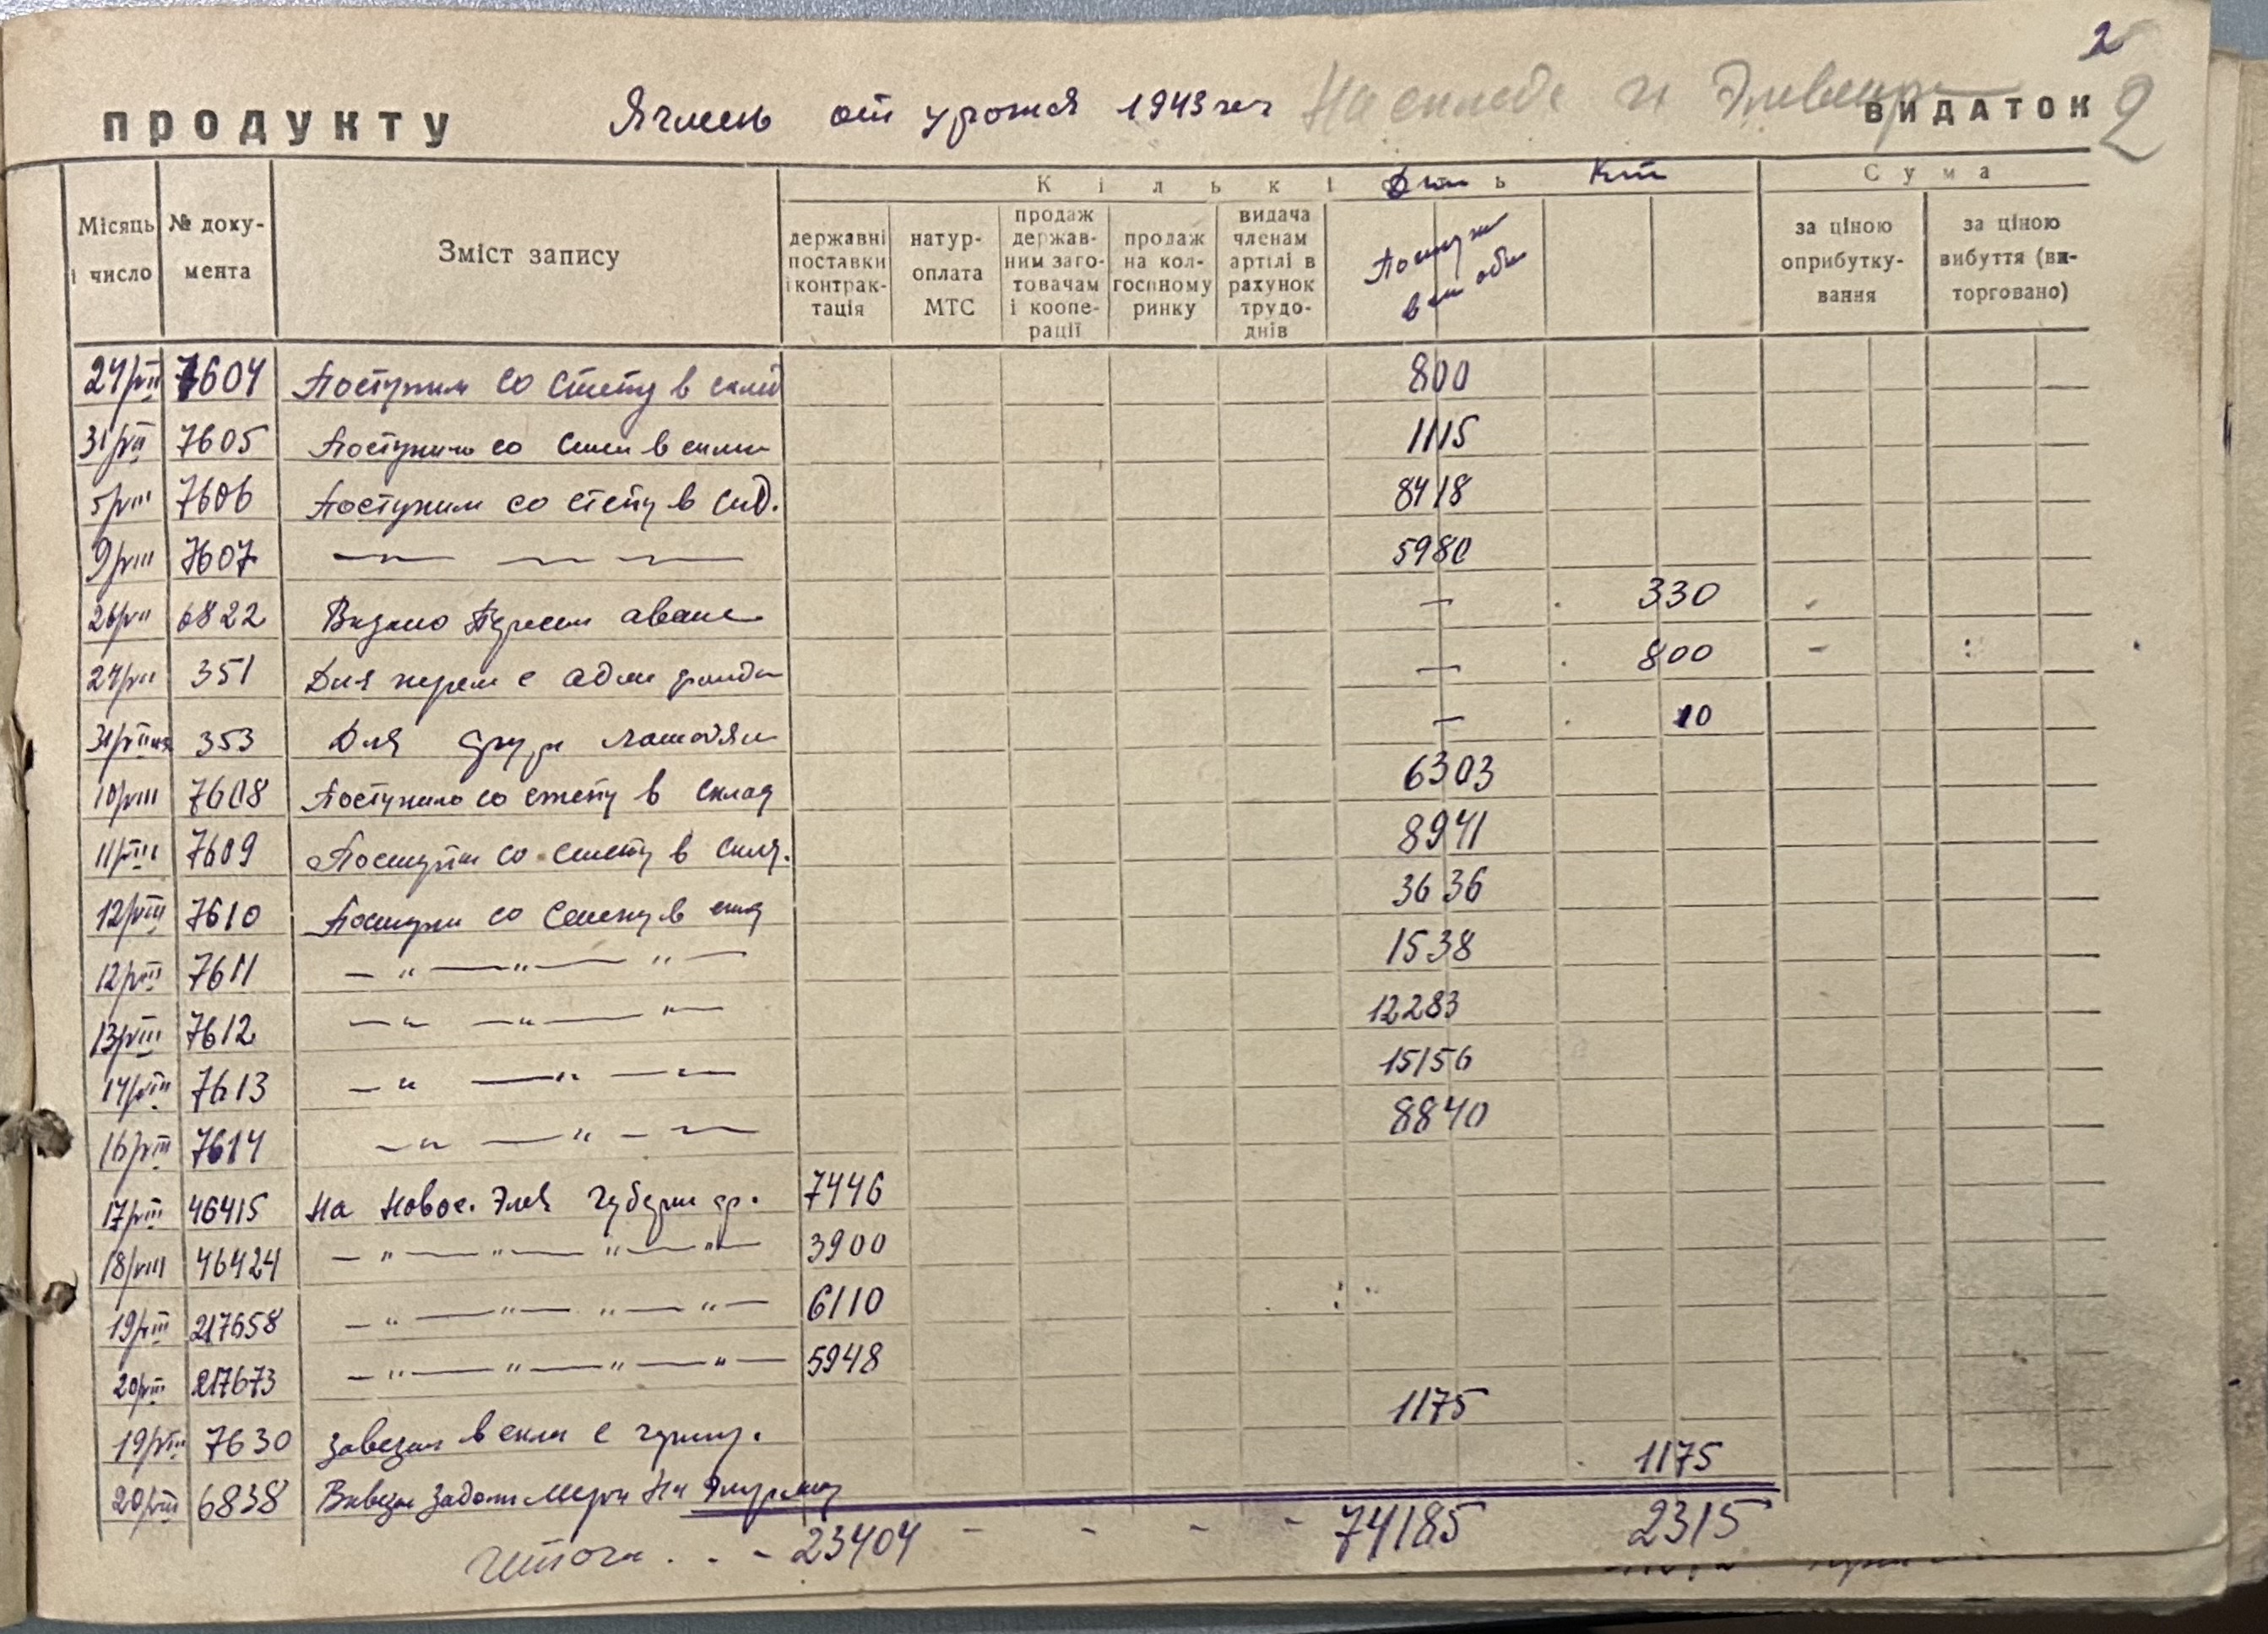 2
ПРОДУКТУ Ячмень от урожая 1943 На складе и ВИДАТОК 2
Місяць і число
№ документа
Зміст запису
Кількість
Дт
Кт
Сума
державні поставки і контрактація
натуроплата МТС
продаж державним заготовачам і кооперації
продаж на колгоспному ринку
видача членам артілі в рахунок трудоднів
за ціною оприбуткування
за ціною вибуття (виторговано)
24/VII 7604 Поступило со степу в склад 800
31/VII 7605 Поступило со в 1115
5/VIII 7606 Поступило со степу в скл. 8418
9/VIII 7607 — " — — — 5980
26/VII 6822 Видано аванс — 330
27/VII 351 Для с — 800
31/VII 353 Для — 10
10/VIII 7608 Поступило со степу в склад 6303
11/VIII 7609 Поступило со степу в скл. 8941
12/VIII 7610 Поступило со степу в склад 3636
12/VIII 7611 — " — " — " — 1538
13/VIII 7612 — " — " — " — 12283
14/VIII 7613 — " — " — " — 15156
16/VIII 7614 — " — " — " — 8840
17/VIII 46415 На Новое. Элев 7446
18/VIII 46424 — " — " — " — " — 3900
19/VIII 217658 — " — " — " — " — 6110
20/VIII 217673 — " — " — " — " — 5948
19/VIII 7630 завезен в скл с 1175
20/VIII 6838 Вивезен На 1175
Итого . . - 23404 - - - - 74185 2315